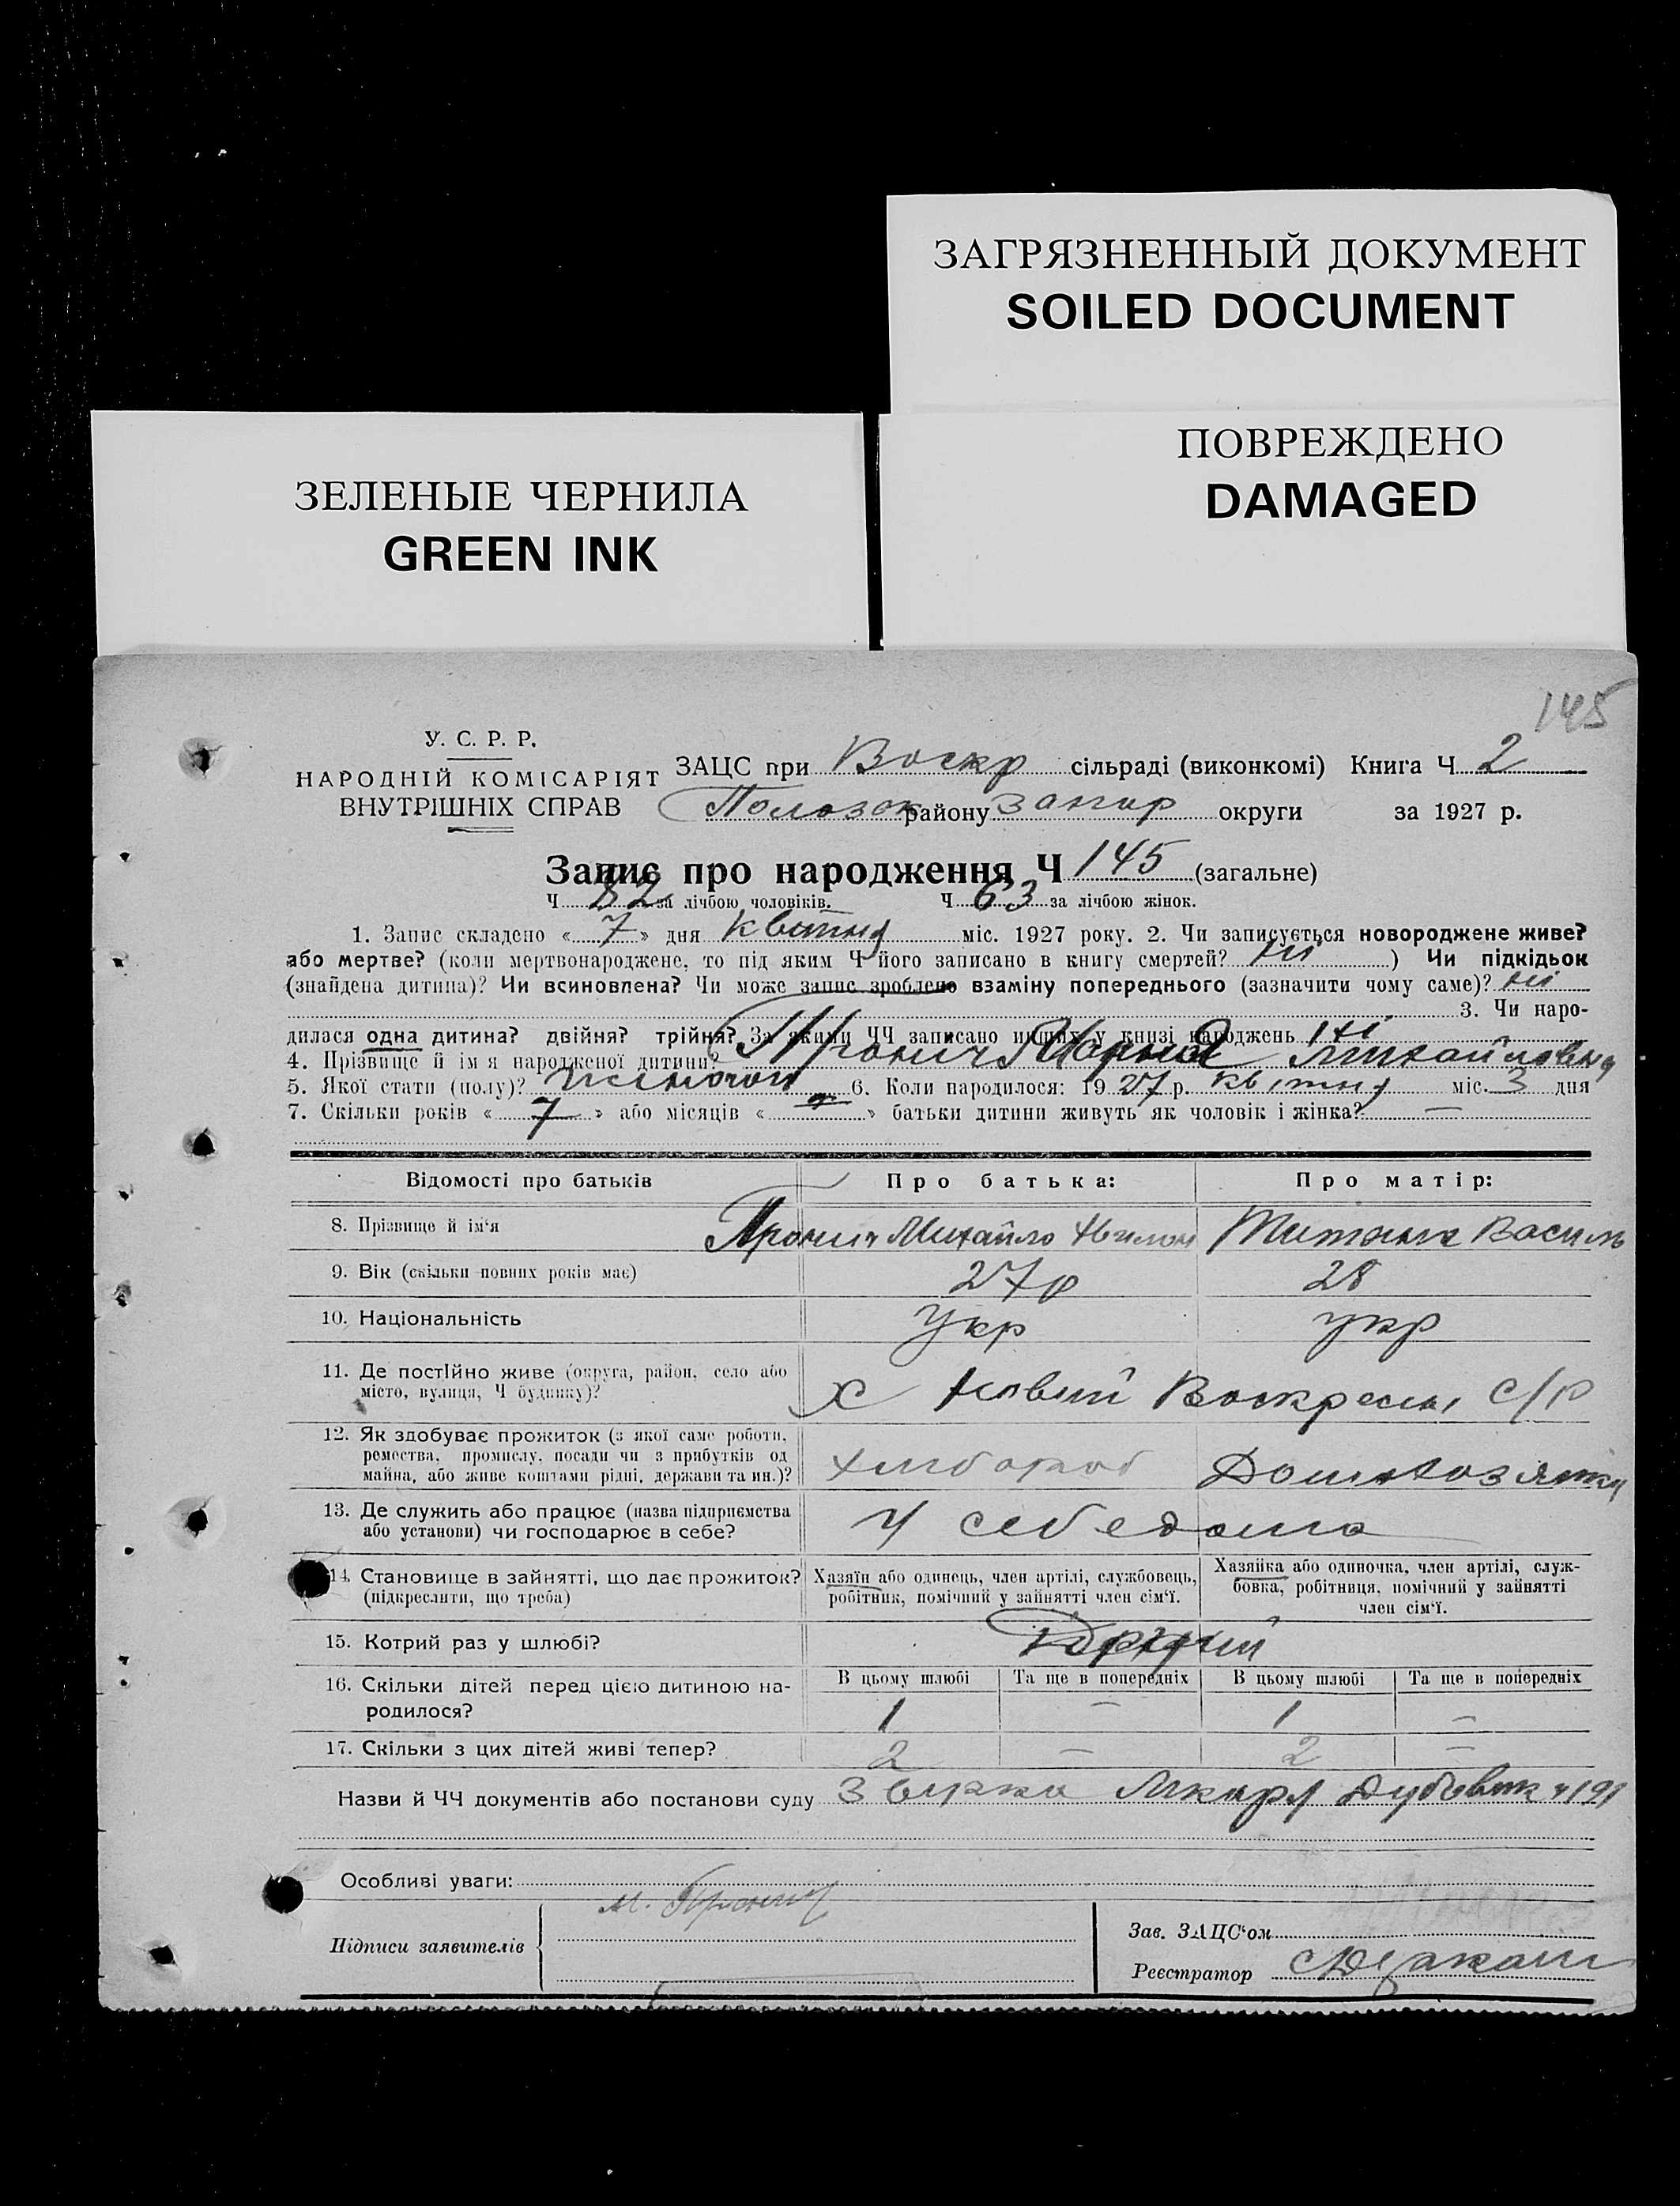 ЗАГРЯЗНЕННЫЙ ДОКУМЕНТ
SOILED DOCUMENT
ПОВРЕЖДЕНО
DAMAGED
ЗЕЛЕНЫЕ ЧЕРНИЛА
GREEN INK
145
У. С. Р. Р.
НАРОДНІЙ КОМІСАРІЯТ
ВНУТРІШНІХ СПРАВ
ЗАЦС при Воскр сільраді (виконкомі) Книга Ч 2
Пологок району Запор округи за 1927 р.
Запис про народження Ч 145 (загальне)
Ч 82 за лічбою чоловіків. Ч 63 за лічбою жінок.
1. Запис складено « 7 » дня квітня міс. 1927 року. 2. Чи записується новороджене живе?
або мертве? (коли мертвонароджене, то під яким Ч його записано в книгу смертей? ні ) Чи підкідьок
(знайдена дитина)? Чи всиновлена? Чи може запис зроблено взаміну попереднього (зазначити чому саме)? ні
3. Чи наро-
дилася одна дитина? двійня? трійня? За якими ЧЧ записано инших у книзі народжень ні
4. Прізвище й ім я народженої дитини? Пронич Марія Михайловна
5. Якої стати (полу)? жіночої 6. Коли народилося: 19 27 р. квітня міс. 3 дня
7. Скільки років « 7 » або місяців « » батьки дитини живуть як чоловік і жінка? —
Відомості про батьків Про батька: Про матір:
8. Прізвище й ім‘я Пронич Михайло Тетяна Василь
9. Вік (скільки повних років має) 27 р 28
10. Національність Укр укр
11. Де постійно живе (округа, район, село або
місто, вулиця, Ч будинку)? х Новий Воскресен, С/Р
12. Як здобуває прожиток (з якої саме роботи,
ремества, промислу, посади чи з прибутків од
майна, або живе коштами рідні, держави та ин.)? хлібороб Домохозяйка
13. Де служить або працює (назва підприємства
або установи) чи господарює в себе? У себе дома
14. Становище в зайнятті, що дає прожиток?
(підкреслити, що треба)
Хазяїн або одинець, член артілі, службовець,
робітник, помічний у зайнятті член сім‘ї.
Хазяйка або одиночка, член артілі, служ-
бовка, робітниця, помічний у зайнятті
член сім‘ї.
15. Котрий раз у шлюбі?
В цьому шлюбі Та ще в попередніх В цьому шлюбі Та ще в попередніх
16. Скільки дітей перед цією дитиною на-
родилося? 1 — 1 —
17. Скільки з цих дітей живі тепер? 2 — 2 —
Назви й ЧЧ документів або постанови суду
Особливі уваги:
Підписи заявителів М. Пронич
Зав. ЗАЦС‘ом
Реєстратор